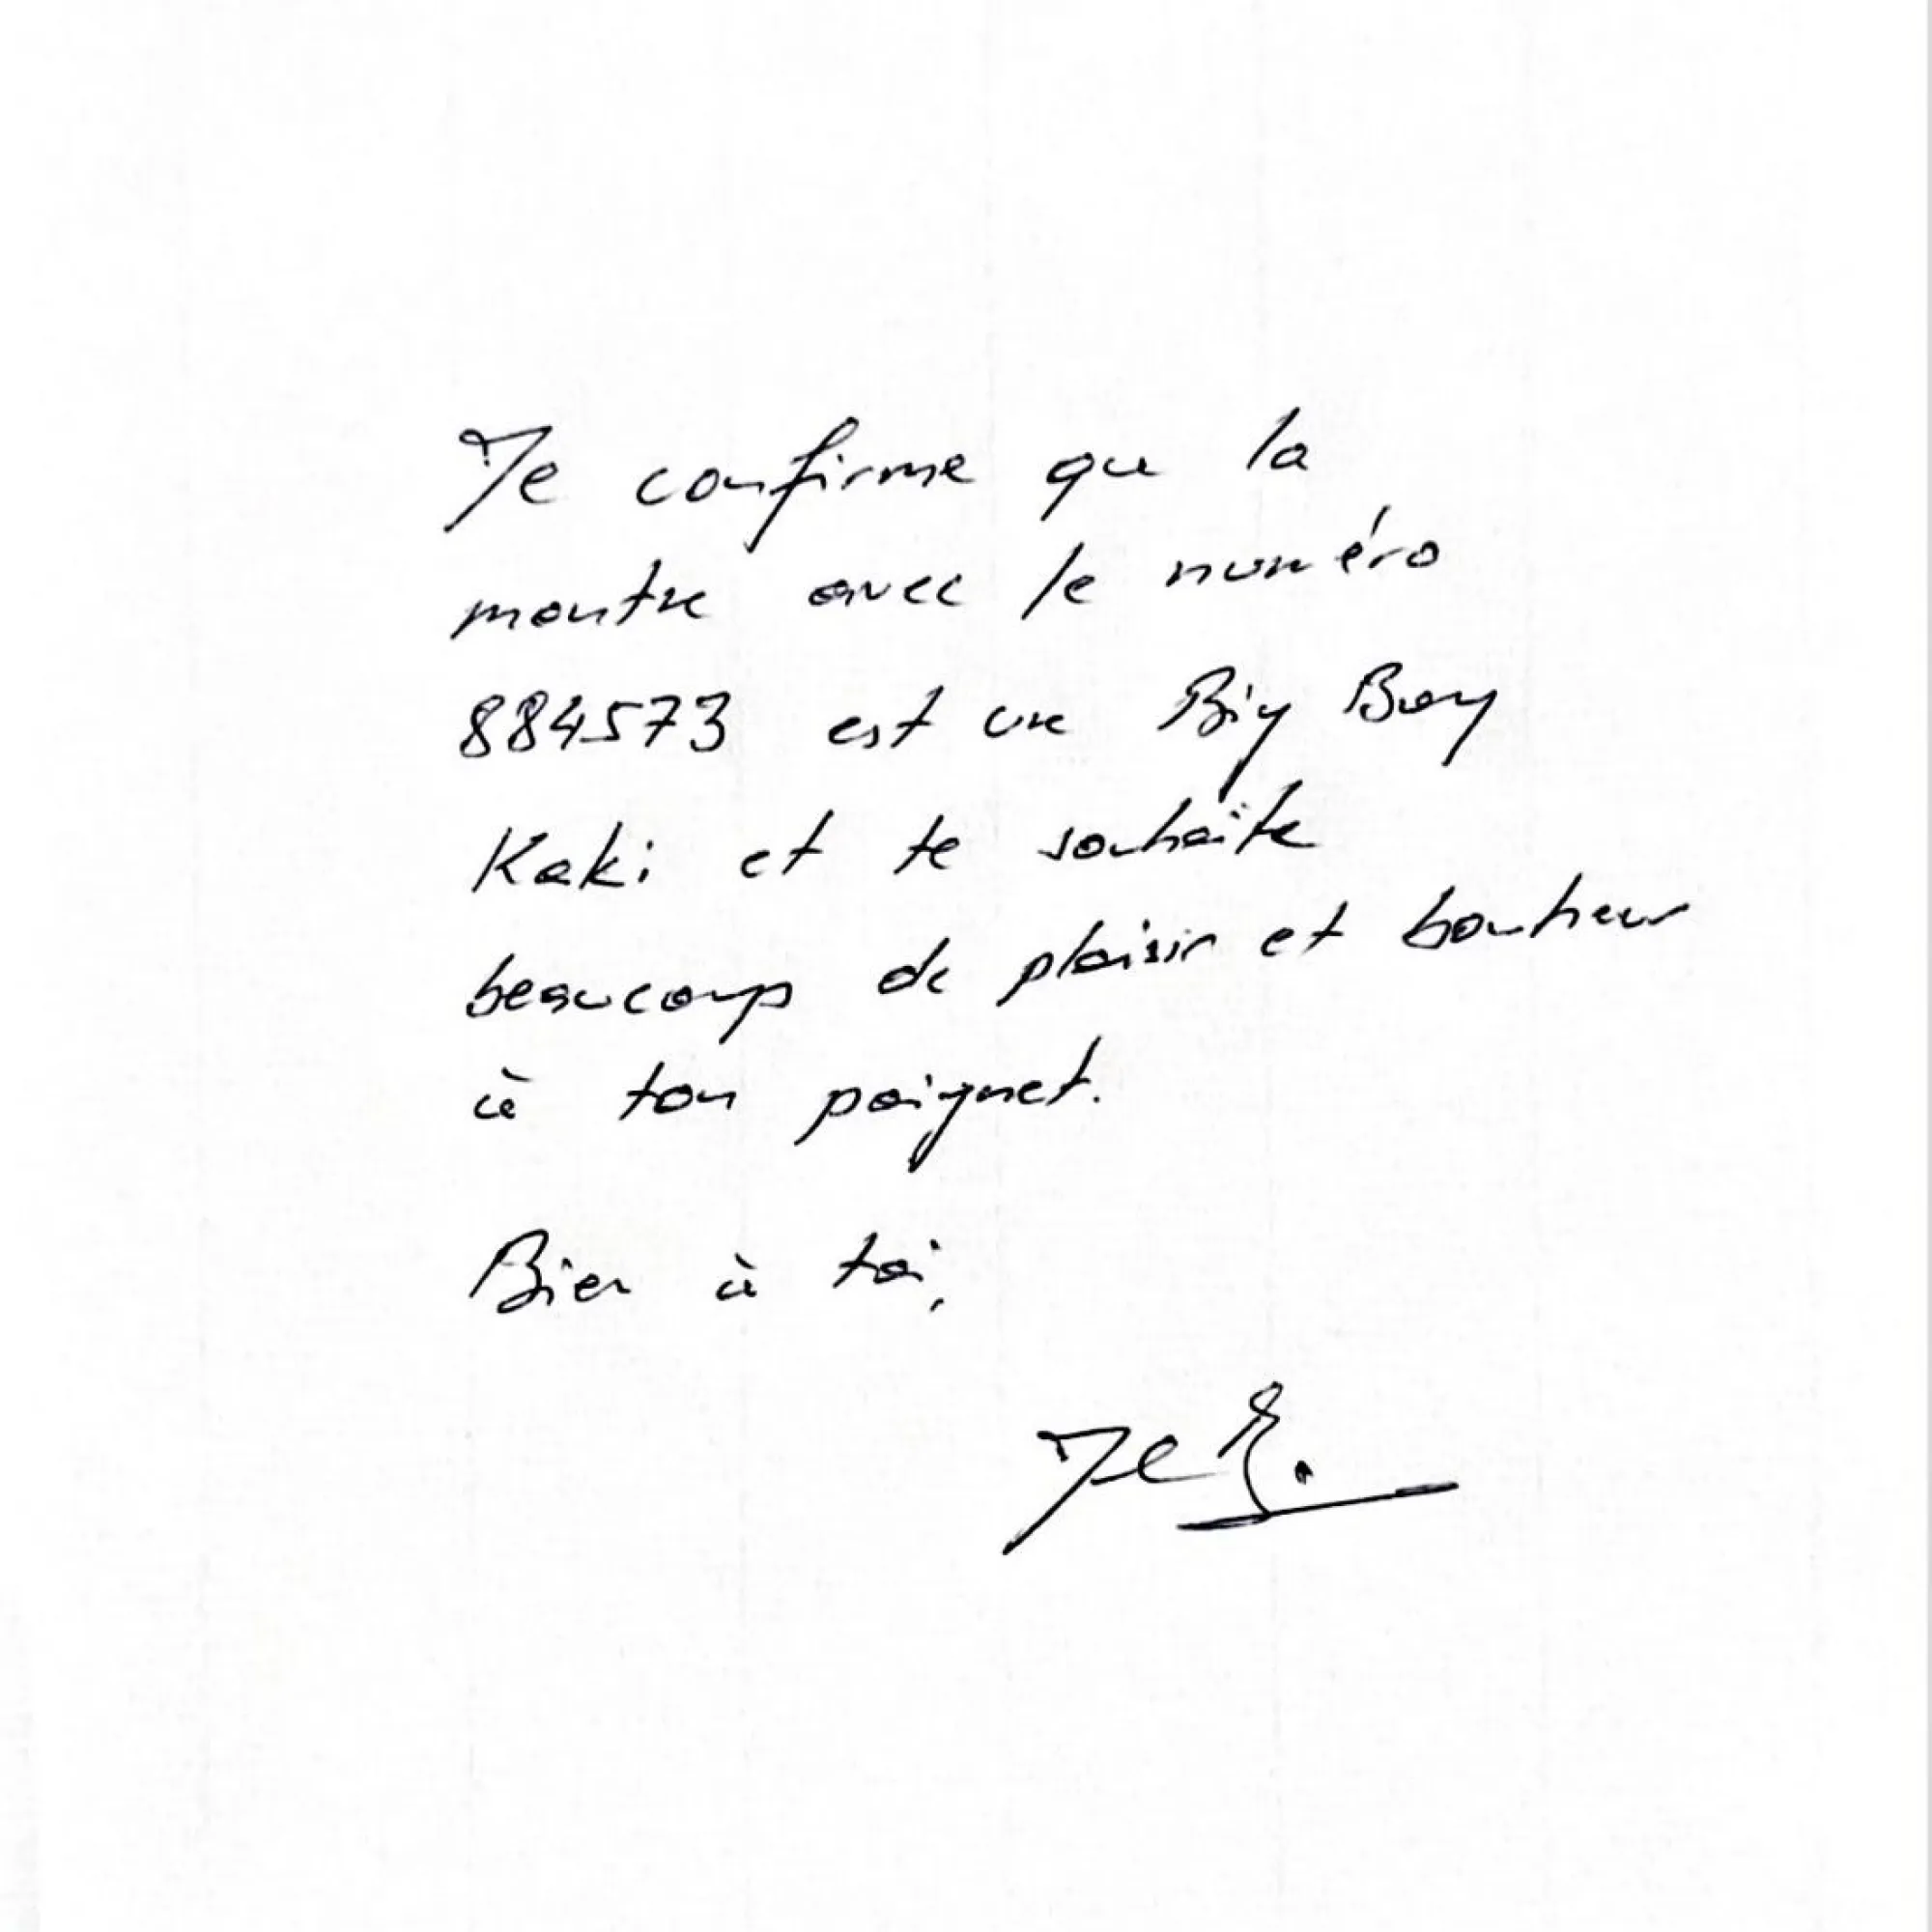 Je confirme que la
montre avec le numéro
884573 est une Big Bey
Kaki et te souhaite
beaucoup de plaisir et bonheur
à ton poignet.
Bien à toi,